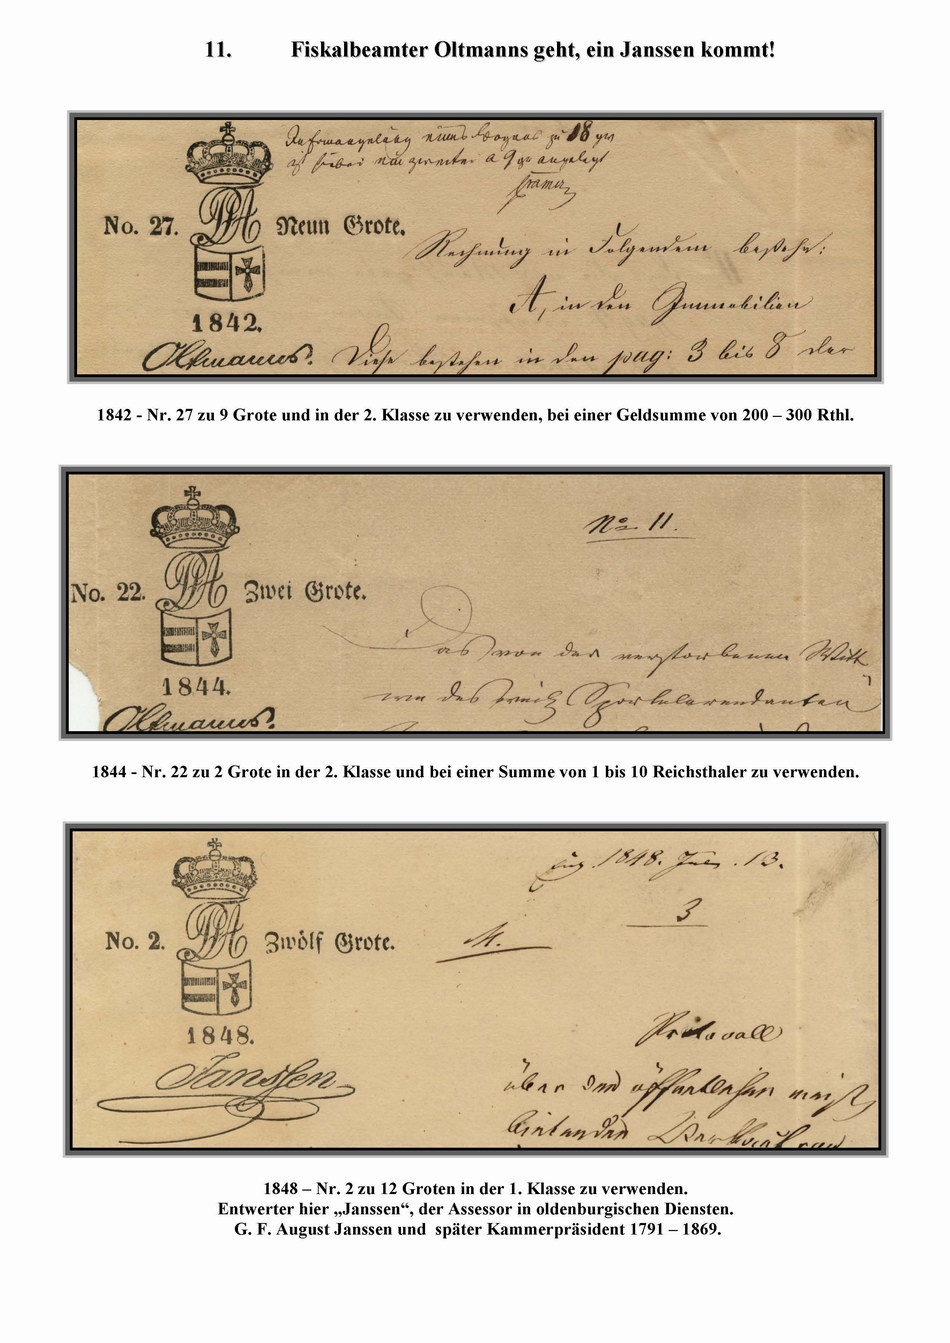 11. Fiskalbeamter Oltmanns geht, ein Janssen kommt!
zu 18
Cramer
No. 27. Neun Grote.
Rechnung in Folgendem bestehe:
A, in den Immobilien
1842.
Oltmanns. Diese bestehen in den pag: 3 bis 8 der
1842 - Nr. 27 zu 9 Grote und in der 2. Klasse zu verwenden, bei einer Geldsumme von 200 – 300 Rthl.
No 11.
No. 22. Zwei Grote.
Das von der verstorbenen
1844.
des
Oltmanns.
1844 - Nr. 22 zu 2 Grote in der 2. Klasse und bei einer Summe von 1 bis 10 Reichsthaler zu verwenden.
1848. 13.
3
No. 2. Zwölf Grote.
1848.
Protocoll
Janssen
über den öffentlichen
1848 – Nr. 2 zu 12 Groten in der 1. Klasse zu verwenden.
Entwerter hier „Janssen“, der Assessor in oldenburgischen Diensten.
G. F. August Janssen und später Kammerpräsident 1791 – 1869.